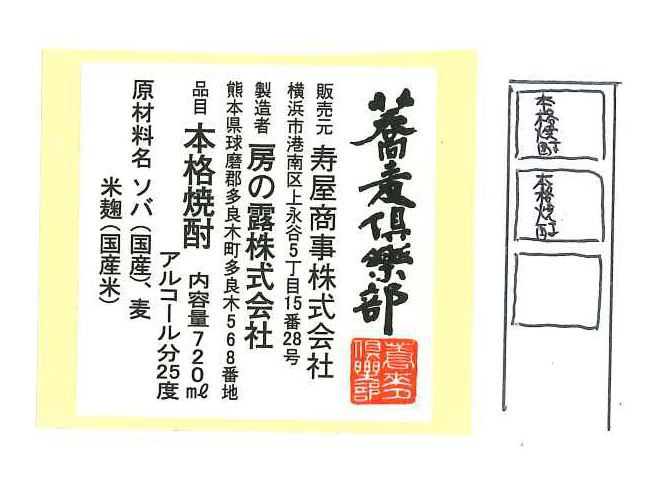 蕎麦倶楽部
蕎麦倶楽部
販売元 寿屋商事株式会社
横浜市港南区上永谷5丁目15番28号
製造者 房の露株式会社
熊本県球磨郡多良木町多良木568番地
品目 本格焼酎 内容量720mℓ
アルコール分25度
原材料名 ソバ(国産)、麦
米麹(国産米)
本格焼酎
本格焼酎